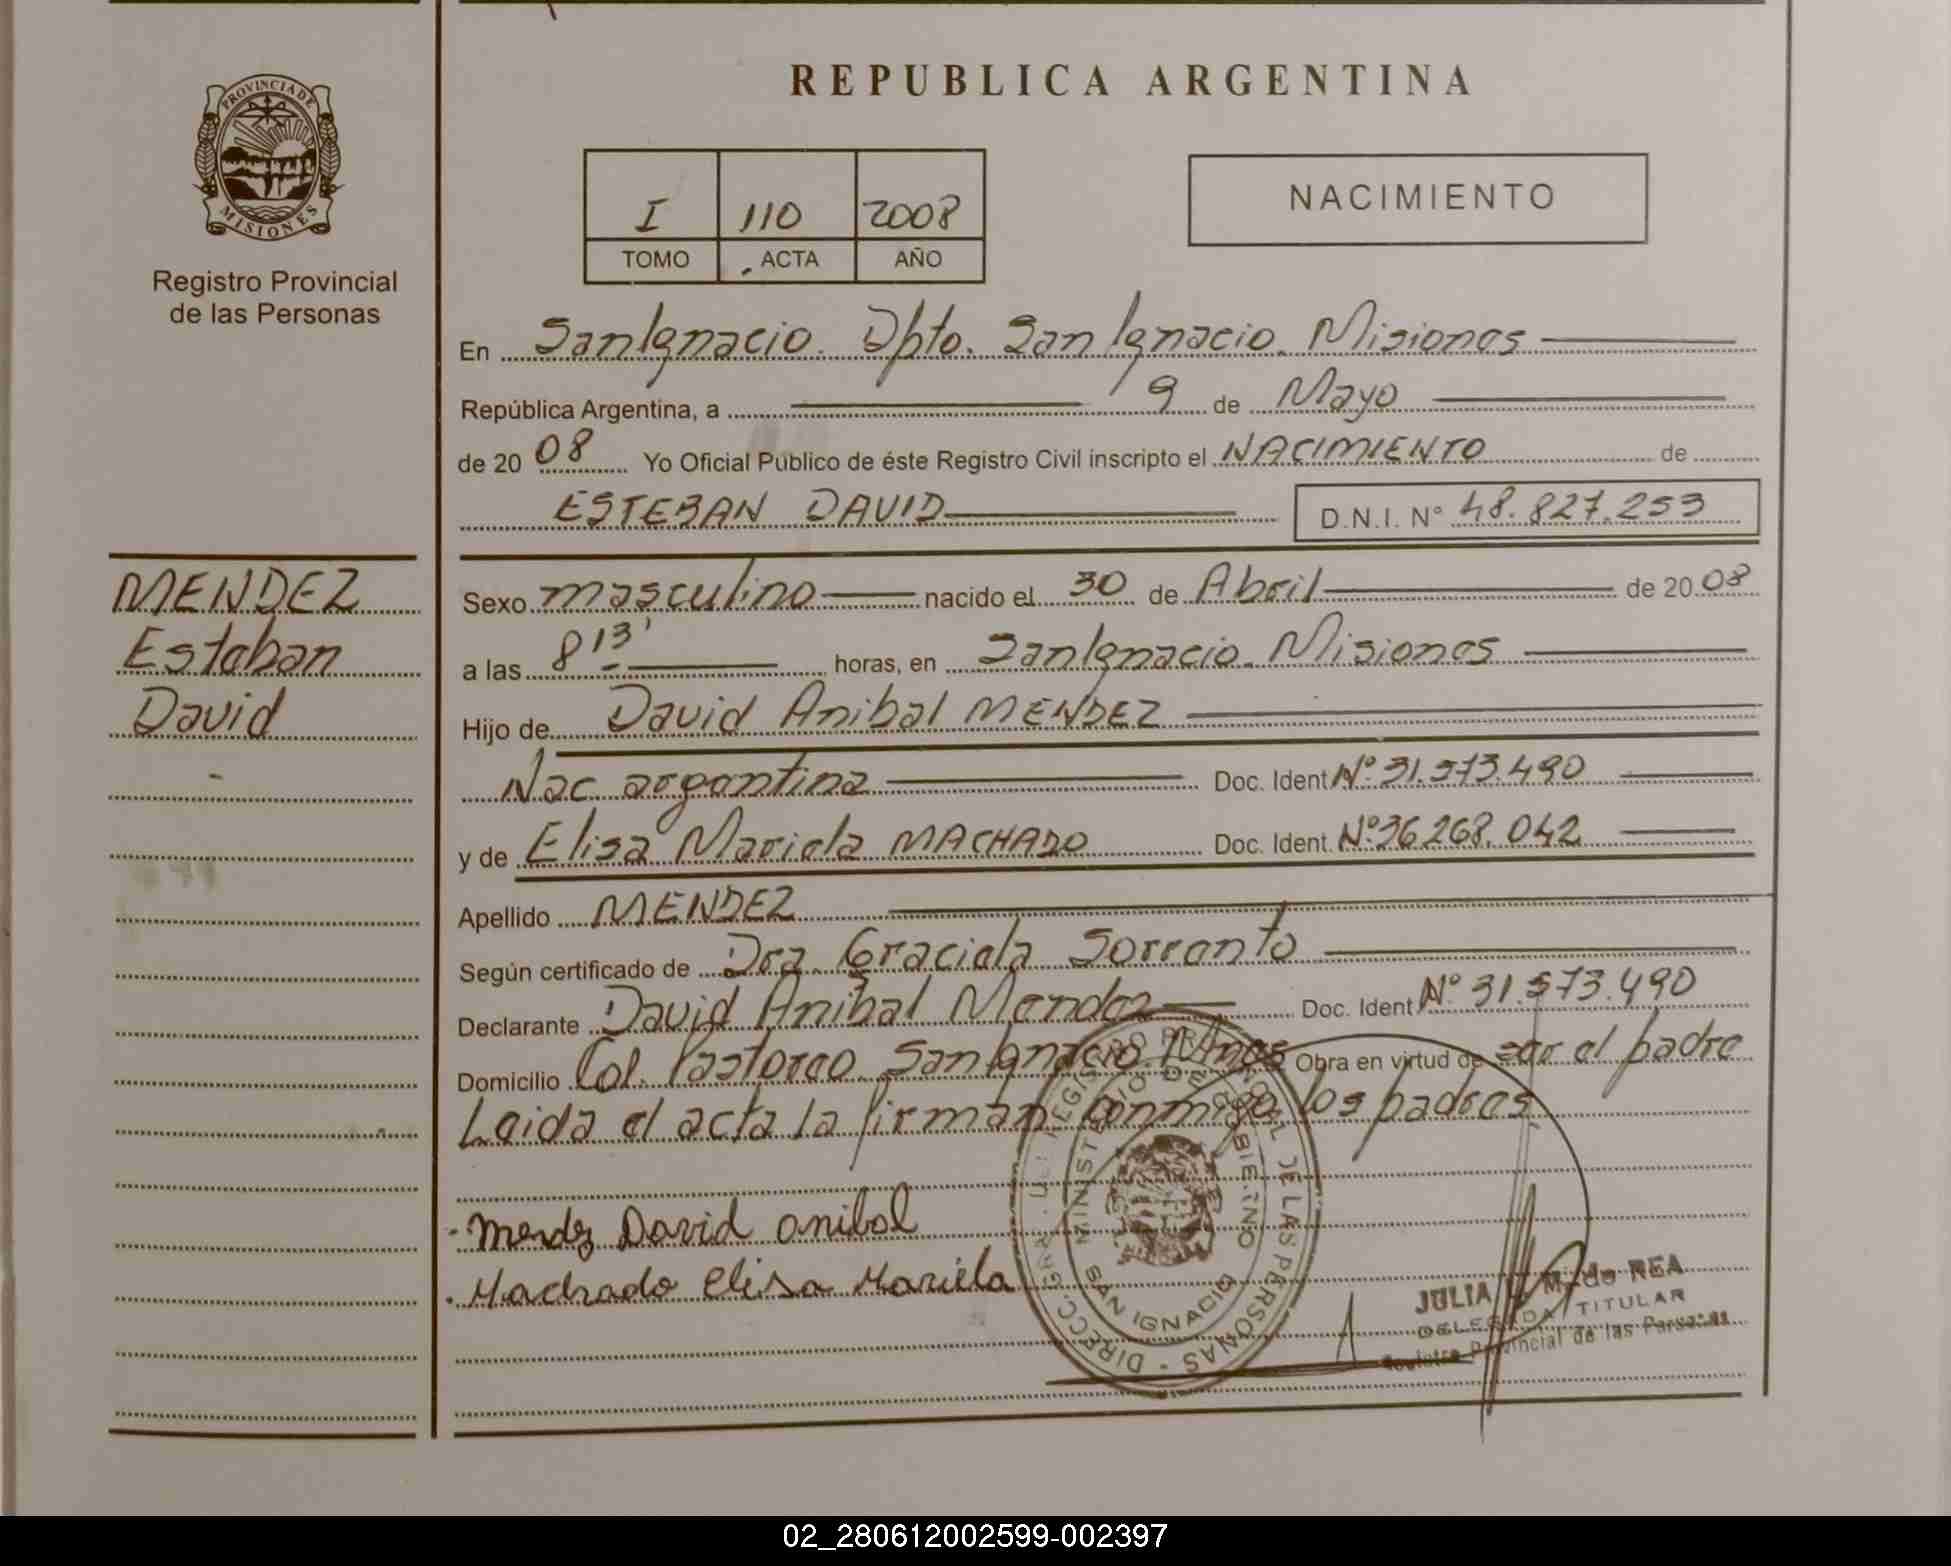 REPUBLICA ARGENTINA
PROVINCIA DE
MISIONES
Registro Provincial
de las Personas
I 110 2008
TOMO ACTA AÑO
NACIMIENTO
En San Ignacio. Dpto. San Ignacio. Misiones
República Argentina, a 9 de Mayo
de 2008 Yo Oficial Público de éste Registro Civil inscripto el NACIMIENTO de
ESTEBAN DAVID D.N.I. Nº 48.827.253
MENDEZ
Esteban
David
Sexo masculino nacido el 30 de Abril de 2008
a las 8 13' horas, en San Ignacio. Misiones
Hijo de David Anibal MENDEZ
Nac. argentina Doc. Ident Nº 31.573.490
y de Elisa Mariela MACHADO Doc. Ident. Nº 36.268.042
Apellido MENDEZ
Según certificado de Dra. Graciela Sorrento
Declarante David Anibal Mendez Doc. Ident Nº 31.573.490
Domicilio Col. Pastoreo San Ignacio Mnes Obra en virtud de ser el padre
Leida el acta la firman conmigo los padres,
Mendez David anibal
Machado Elisa Mariela
DIRECC. GRAL. DEL REGISTRO PROVINCIAL DE LAS PERSONAS
MINISTERIO DE GOBIERNO
SAN IGNACIO
JULIA REA
DELEGADA TITULAR
Registro Provincial de las Personas
02_280612002599-002397